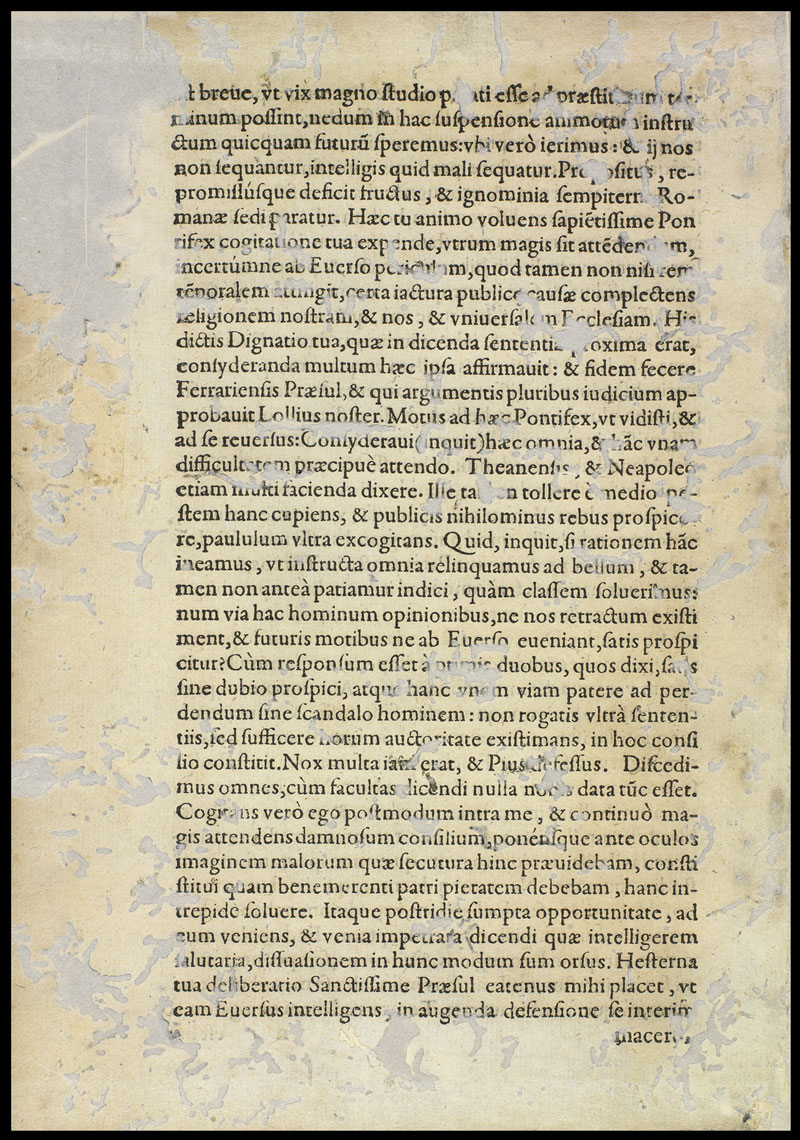 breue, vt vix magno ſtudio eſſe
poſſint, nedum in hac ſuſpenſione inſtru
ctum quicquam futurũ ſperemus: vbi verò ierimus: & ij nos
non ſequantur, intelligis quid mali ſequatur. re-
promiſſúſque deficit fructus, & ignominia Ro-
manæ ſedi paratur. Hæc tu animo voluens ſapiẽtiſſime Pon
tifex cogitatione tua expende, vtrum magis ſit
ab Euerſo quod tamen non niſi
iactura publicę cauſæ complectens
religionem noſtram, & nos, & vniuerſalem Eccleſiam.
dictis Dignatio tua, quæ in dicenda erat,
conſyderanda multum hæc ipſa affirmauit: & fidem fecere
Ferrarienſis Præſul, & qui argumentis pluribus iudicium ap-
probauit Lollius noſter. Motus ad hæc Pontifex, vt vidiſti, &
ad ſe reuerſus: Conſyderaui (inquit) hæc omnia, & hãc vnam
difficultatem præcipuè attendo. Theanenſis, &
etiam multi facienda dixere. Ille tollere è medio pe-
ſtem hanc cupiens, & publicis nihilominus rebus proſpice-
re, paululum vltra excogitans. Quid, inquit, ſi rationem hãc
ineamus, vt inſtructa omnia relinquamus ad bellum, & ta-
men non anteà patiamur indici, quàm claſſem ſoluerimus:
num via hac hominum opinionibus, ne nos retractum exiſti
ment, & futuris motibus ne ab Euerſo eueniant, ſatis proſpi
citur? Cùm reſponſum eſſet à duobus, quos dixi, ſatis
ſine dubio proſpici, atque hanc vnam viam patere ad per-
dendum ſine ſcandalo hominem: non rogatis vltrà ſenten-
tiis, ſed ſufficere horum auctoritate exiſtimans, in hoc conſi
lio conſtitit. Nox multa iam erat, & Pius defeſſus. Diſcedi-
mus omnes, cùm facultas dicendi nulla nobis data tũc eſſet.
Cogitans verò ego poſtmodum intra me, & continuò ma-
gis attendens damnoſum conſilium, ponénſque ante oculos
imaginem malorum quæ ſecutura hinc præuidebam, conſti
ſtitui quam benemerenti patri pietatem debebam, hanc in-
trepidè ſoluere. Itaque poſtridie ſumpta opportunitate, ad
eum veniens, & venia impetrata dicendi quæ intelligerem
ſalutaria, diſſuaſionem in hunc modum ſum orſus. Heſterna
tua deliberatio Sanctiſſime Præſul eatenus mihi placet, vt
eam Euerſus intelligens, in augenda defenſione ſe interim